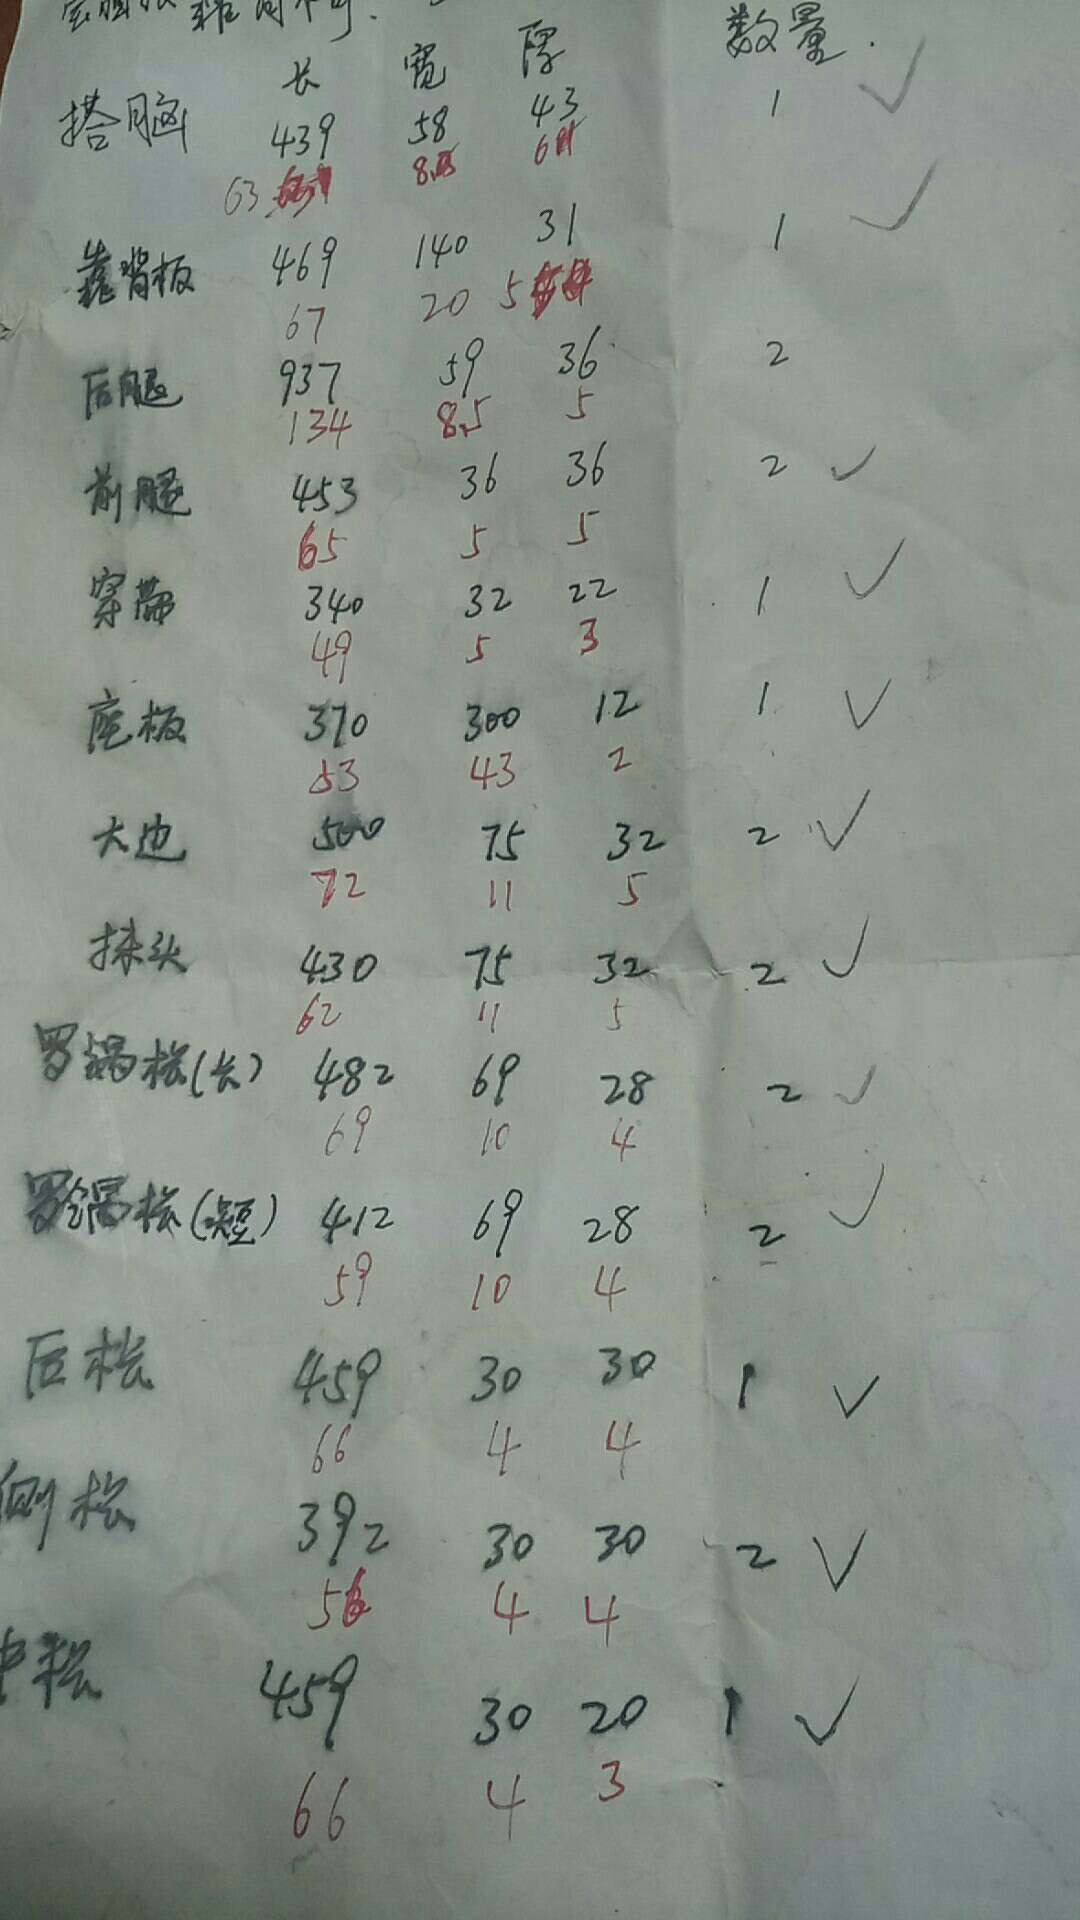 长 宽 厚 数量.
搭脑 439 58 43 1
63 8.5 6
靠背板 469 140 31 1
67 20 5
后腿 937 59 36 2
134 8.5 5
前腿 453 36 36 2
65 5 5
穿带 340 32 22 1
49 5 3
座板 370 300 12 1
53 43 2
大边 500 75 32 2
72 11 5
抹头 430 75 32 2
62 11 5
罗锅枨(长) 482 69 28 2
69 10 4
罗锅枨(短) 412 69 28 2
59 10 4
后枨 459 30 30 1
66 4 4
侧枨 392 30 30 2
56 4 4
中枨 459 30 20 1
66 4 3